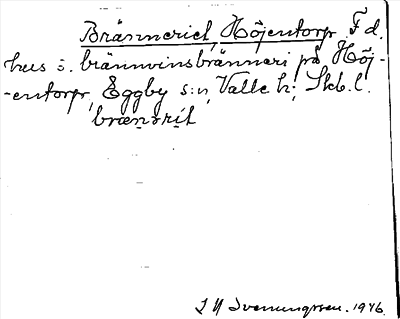 Bränneriet, Höjentorp. F.d.
hus o. brännvinsbränneri på Höj-
-entorp, Eggby s:n, Valle h:, Skb. l.
brænərit
Svenungsson. 1946.